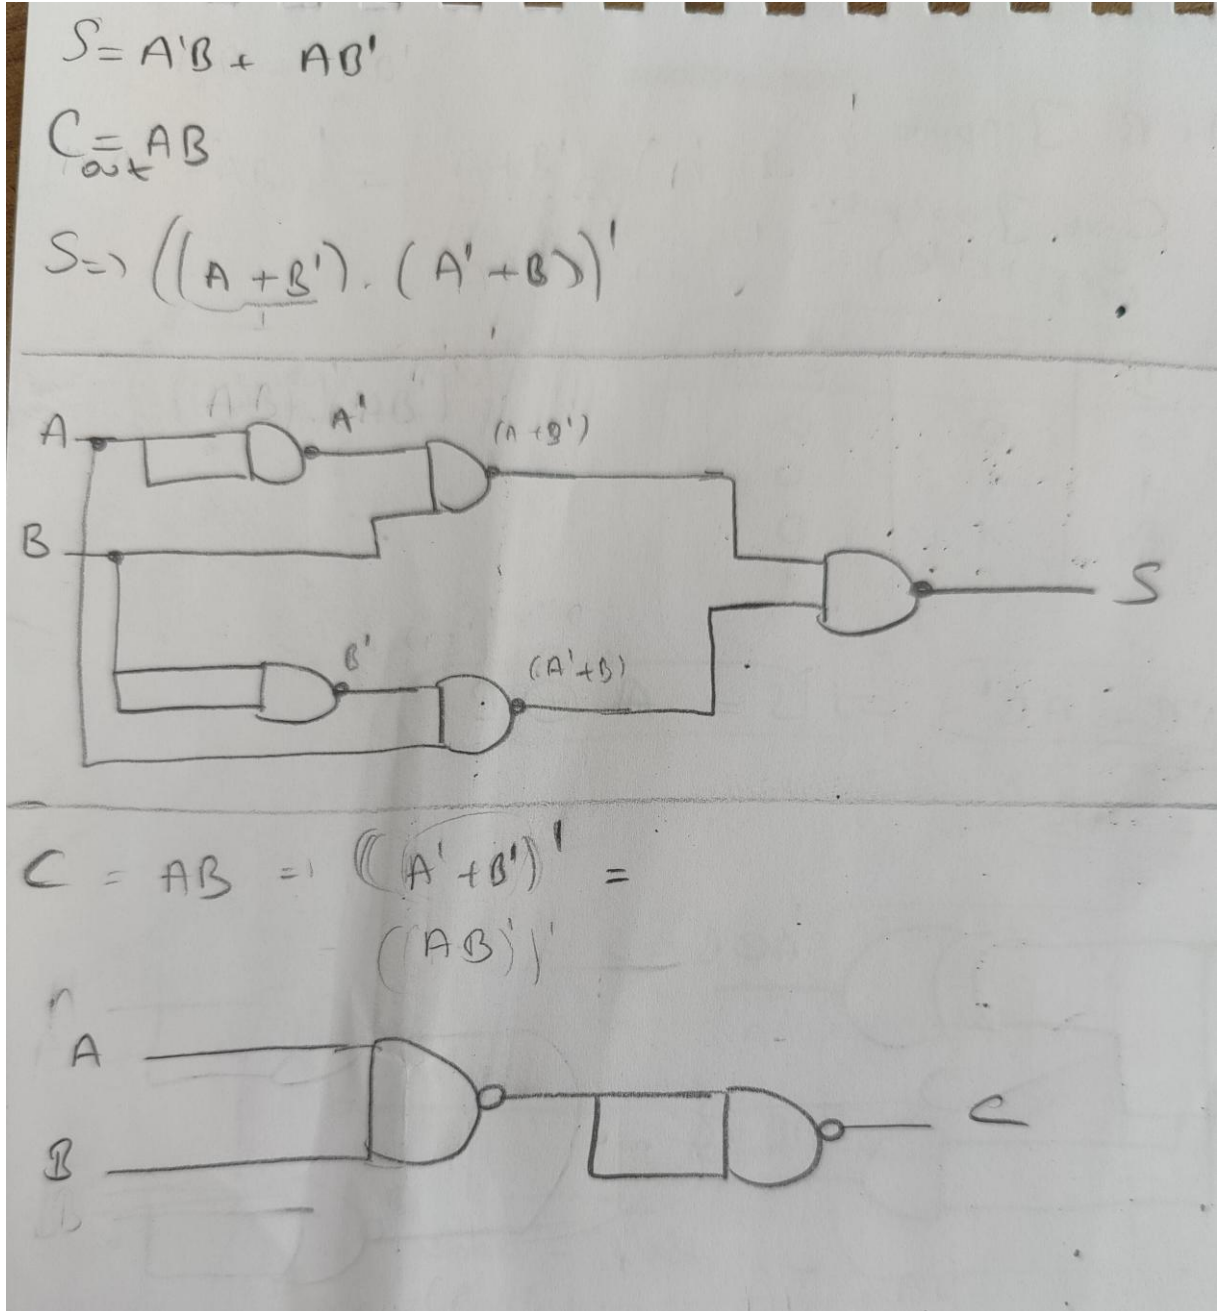 S= A'B + AB'
Cout = AB
S=> ((A + B').(A' + B))'
A A' (A + B')
B
S
B' (A'+B)
C = AB = ((A' + B')' =
((AB)')'
A
C
B